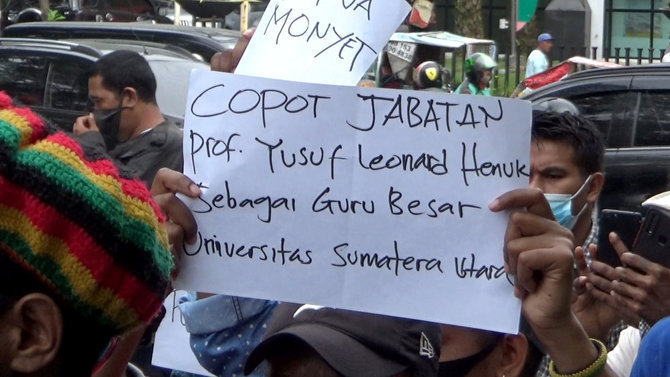 MONYET
COPOT JABATAN
Prof. Yusuf Leonard Henuk
Sebagai Guru Besar
Universitas Sumatera Utara